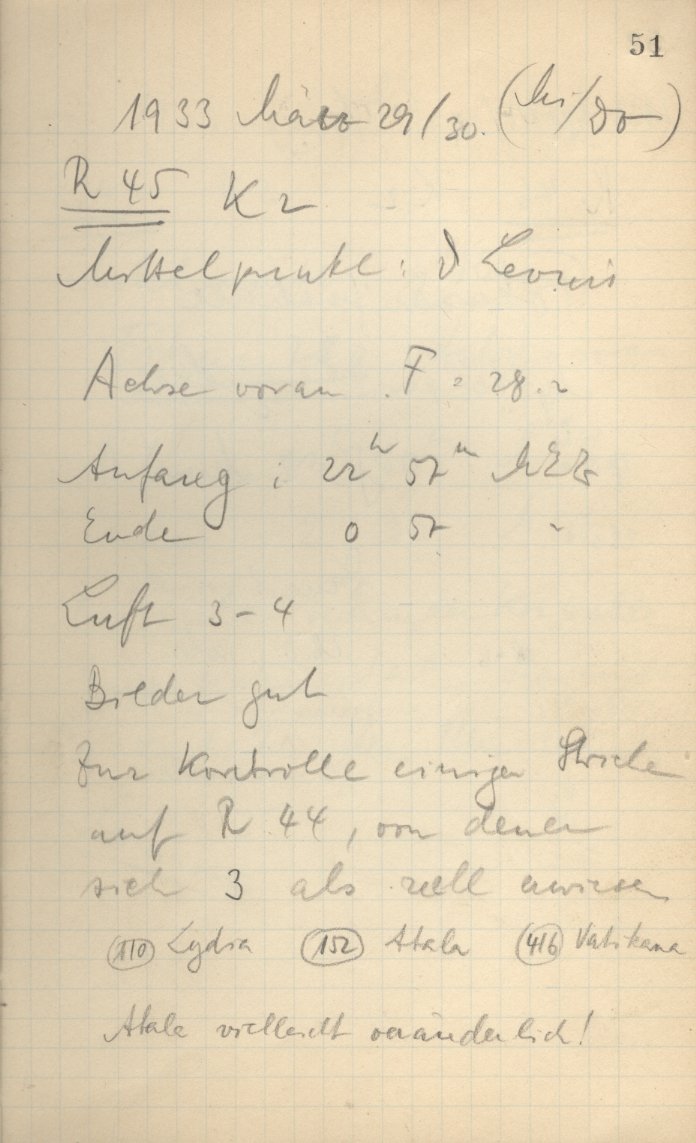 51
1933 März 29/30. (Mi/Do)
R 45 K2
Mittelpunkt: ϑ Leonis
Achse voran. F = 28.2
Anfang: 22h 57m MEZ
Ende 0 57 "
Luft 3-4
Bilder gut
Zur Kontrolle einiger Striche
auf R 44, von denen
sich 3 als reell erwiesen
110 Lydia 152 Atala 416 Vatikana
Atala vielleicht veränderlich!